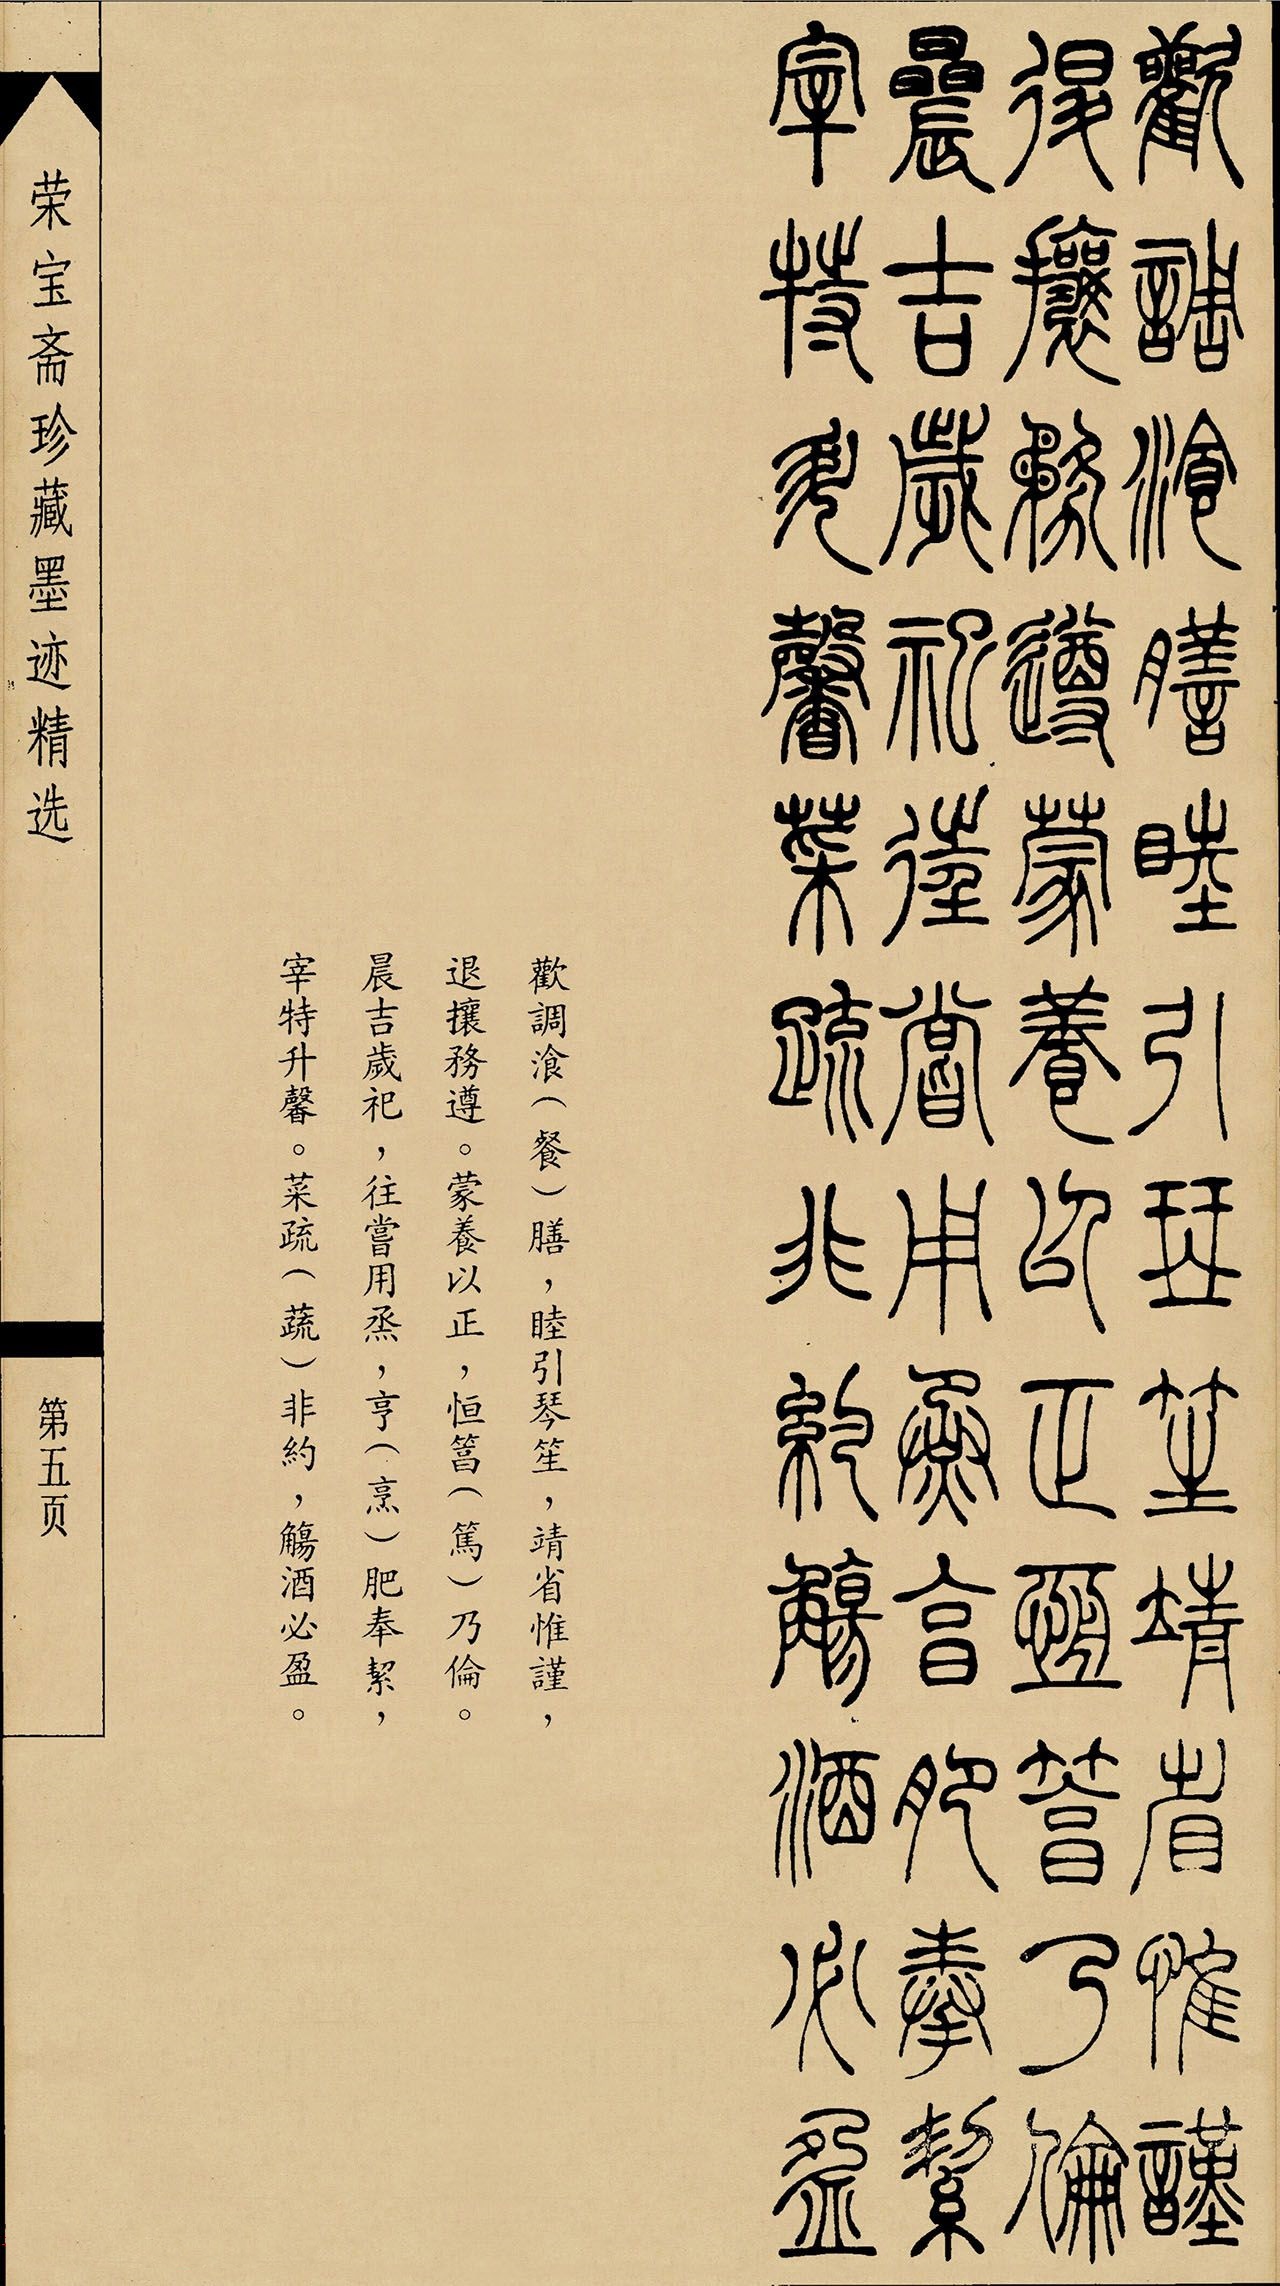 歡調湌膳睦引琴笙靖省惟謹
退攘務遵蒙養以正恒筥乃倫
晨吉歲祀往嘗用烝亨肥奉絜
宰特升馨菜疏非約觴酒必盈
歡調湌（餐）膳，睦引琴笙，靖省惟謹，
退攘務遵。蒙養以正，恒筥（篤）乃倫。
晨吉歲祀，往嘗用烝，亨（烹）肥奉絜，
宰特升馨。菜疏（蔬）非約，觴酒必盈。
荣宝斋珍藏墨迹精选
第五页